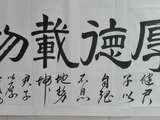 厚德載物
健君
子以
自强
不息
地势
坤
君子
以厚